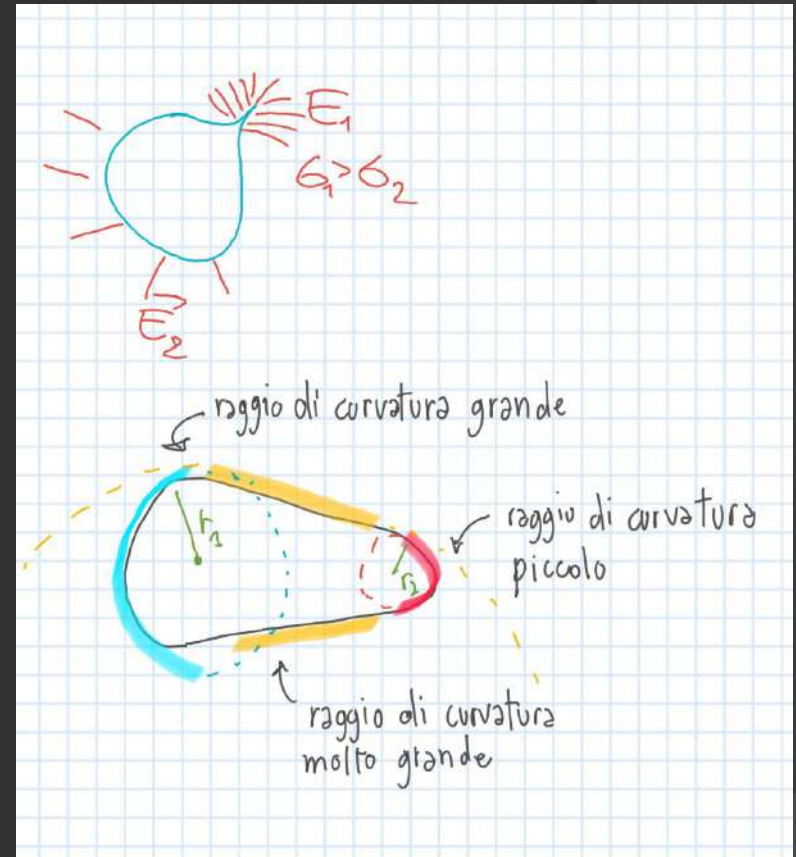 E₁
σ₁>σ₂
E₂
raggio di curvatura grande
r₁
raggio di curvatura
piccolo
r₂
raggio di curvatura
molto grande